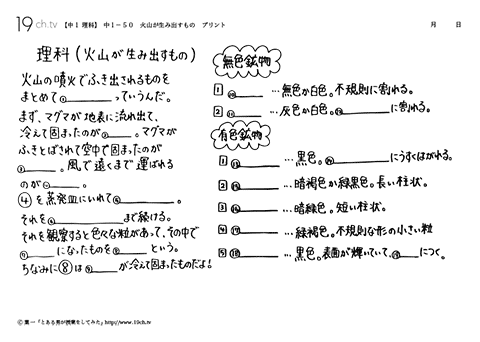 19ch.tv 【中1理科】 中1-50 火山が生み出すもの プリント 月 日
理科(火山が生み出すもの)
火山の噴火でふき出されるものを
まとめて①______っていうんだ。
まず、マグマが地表に流れ出て、
冷えて固まったのが②______。マグマが
ふきとばされて空中で固まったのが
③______。風で遠くまで運ばれる
のが④______。
④を蒸発皿にいれて⑤______。
それを⑥______まで続ける。
それを観察すると色々な粒があって、その中で
⑦______になったものを⑧______という。
ちなみに⑧は⑨______が冷えて固まったものだよ!
無色鉱物
1 ⑩______…無色か白色。不規則に割れる。
2 ⑪______…灰色か白色。⑫______に割れる。
有色鉱物
1 ⑬______…黒色。⑭______にうすくはがれる。
2 ⑮______…暗褐色か緑黒色。長い柱状。
3 ⑯______…暗緑色。短い柱状。
4 ⑰______…緑褐色。不規則な形の小さい粒
5 ⑱______…黒色。表面が輝いていて、⑲______につく。
© 葉一「とある男が授業をしてみた」http://www.19ch.tv